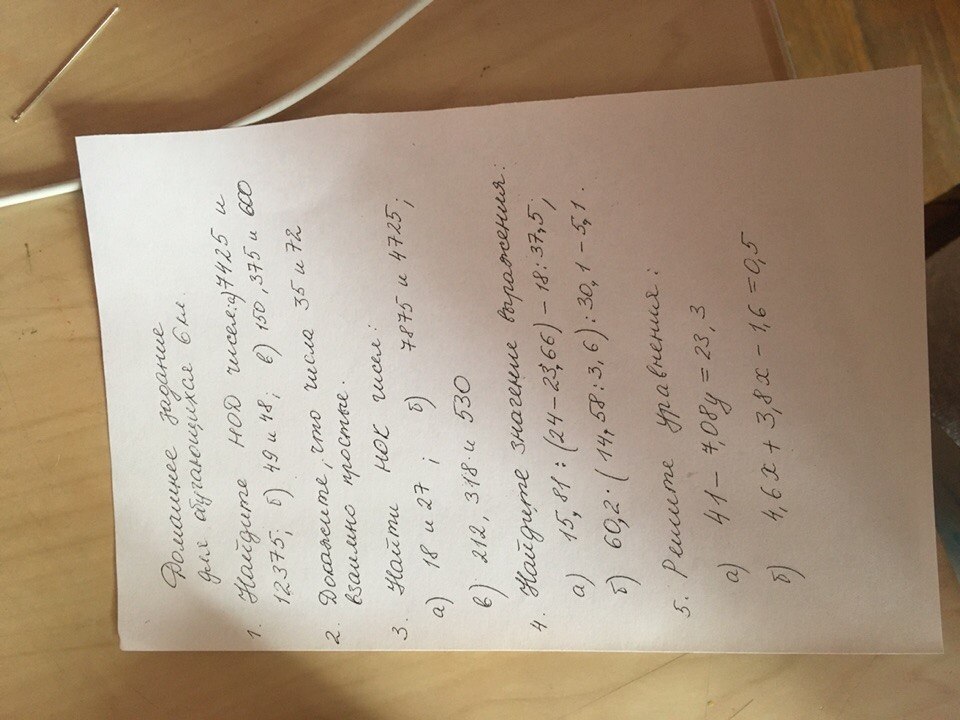 Домашнее задание
для обучающихся 6 кл.
1. Найдите НОД чисел: а) 7425 и
12375; б) 49 и 48; в) 150, 375 и 600
2. Докажите, что числа 35 и 72
взаимно простые.
3. Найти НОК чисел:
а) 18 и 27; б) 7875 и 4725;
в) 212, 318 и 530
4. Найдите значение выражения:
а) 15,81 : (24 - 23,66) - 18 : 37,5;
б) 60,2 · (14,58 : 3,6) : 30,1 - 5,1.
5. Решите уравнения:
а) 41 - 7,08y = 23,3
б) 4,6x + 3,8x - 1,6 = 0,5